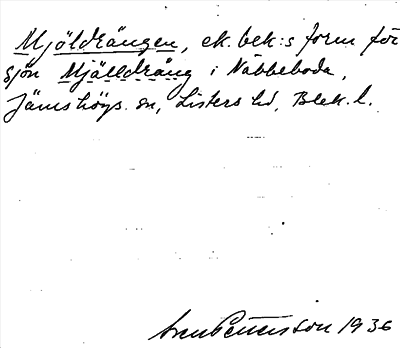 Mjöldrängen, ek. bek:s form för
sjön Mjälldräng i Näbbeboda,
Jämshögs sn, Listers hd, Blek. l.
Sven Petersson 1936